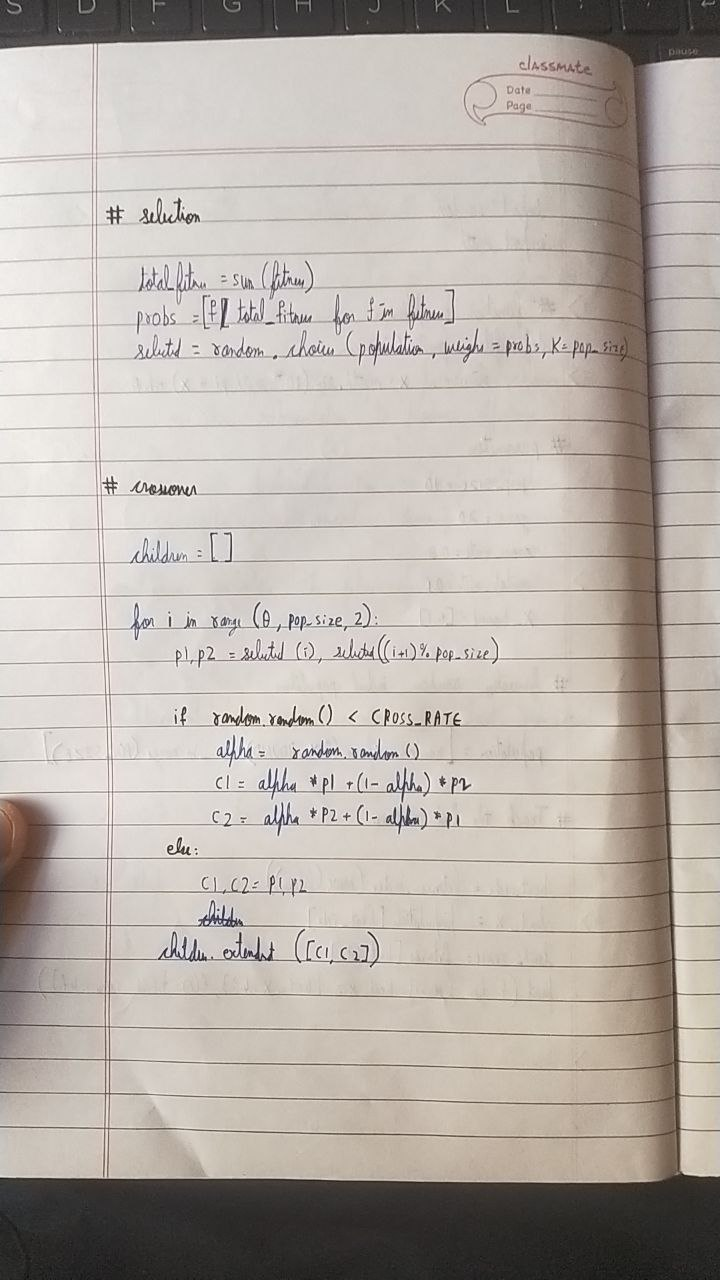 S D F G H J K L
pause
classmate
Date
Page
# selection
total_fitness = sum (fitness)
probs = [f/ total_fitness for f in fitness]
selected = random. choices (population, weighs = probs, K = pop_size)
# crossover
children = []
for i in range (0, pop_size, 2):
p1, p2 = selected (i), selected ((i+1)% pop_size)
if random.random() < CROSS_RATE
alpha = random.random ()
C1 = alpha * p1 + (1- alpha) * p2
C2 = alpha * P2 + (1- alpha) * p1
else:
C1, C2 = P1, P2
children. extend ([C1, C2])